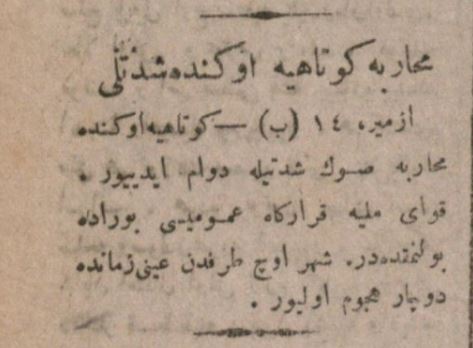 محاربه كوتاهيه اوكنده شدتلى
ازمير، ١٤ (ب) — كوتاهيه اوكنده
محاربه صوك شدتيله دوام ايدييور .
قواى مليه قراركاه عموميسى بوراده
بولنمقده در. شهر اوچ طرفدن عينى زمانده
دوچار هجوم اوليور .